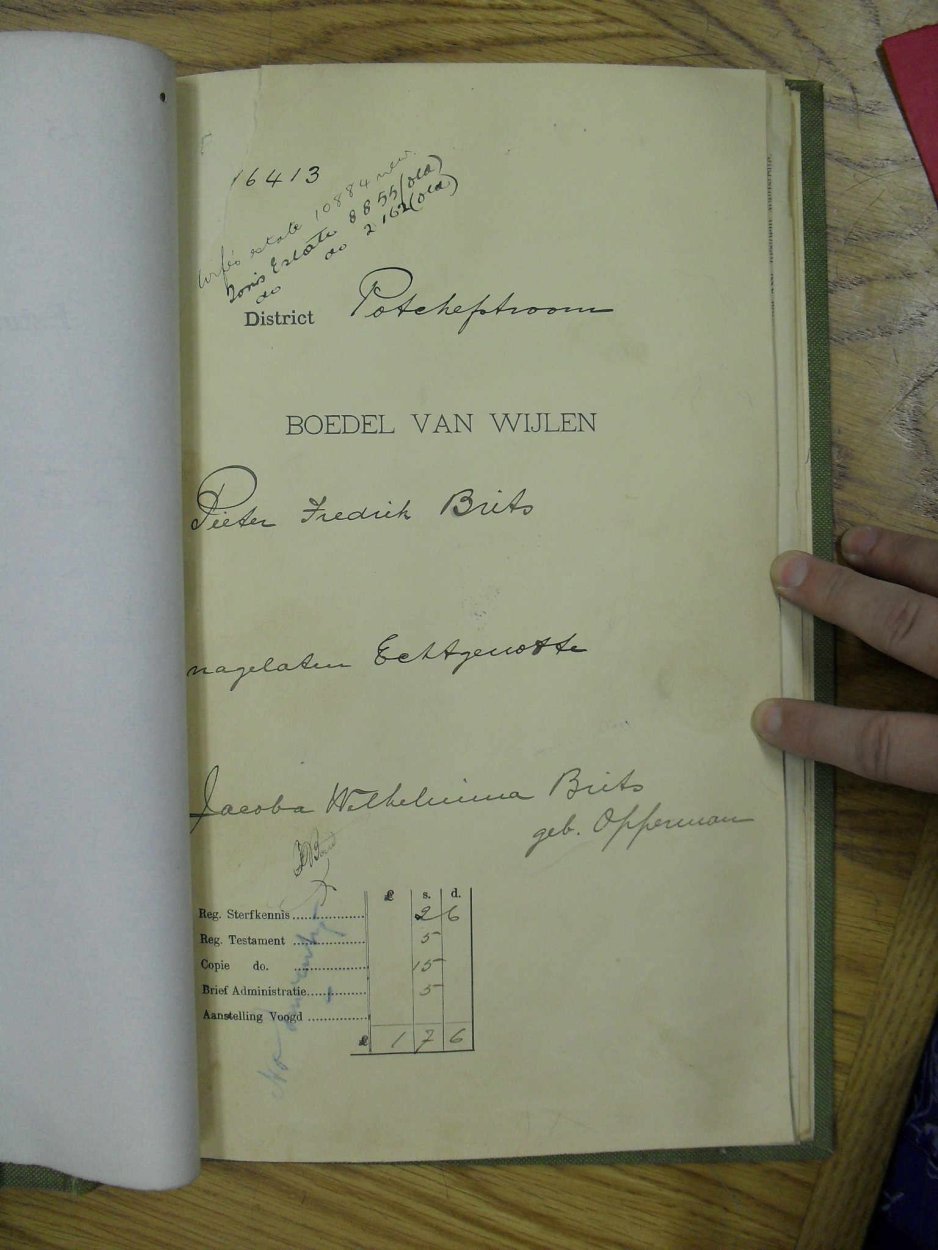 16413
Wife's estate 10884 new
Son's Estate 8855 (old)
do do 2162 (old)
District Potchefstroom
BOEDEL VAN WIJLEN
Pieter Fredrik Brits
nagelaten Echtgenotte
Jacoba Wilhelmina Brits
geb. Opperman
£ s. d.
Reg. Sterfkennis 2 6
Reg. Testament 5
Copie do. 15
Brief Administratie 5
Aanstelling Voogd
£ 1 7 6
No